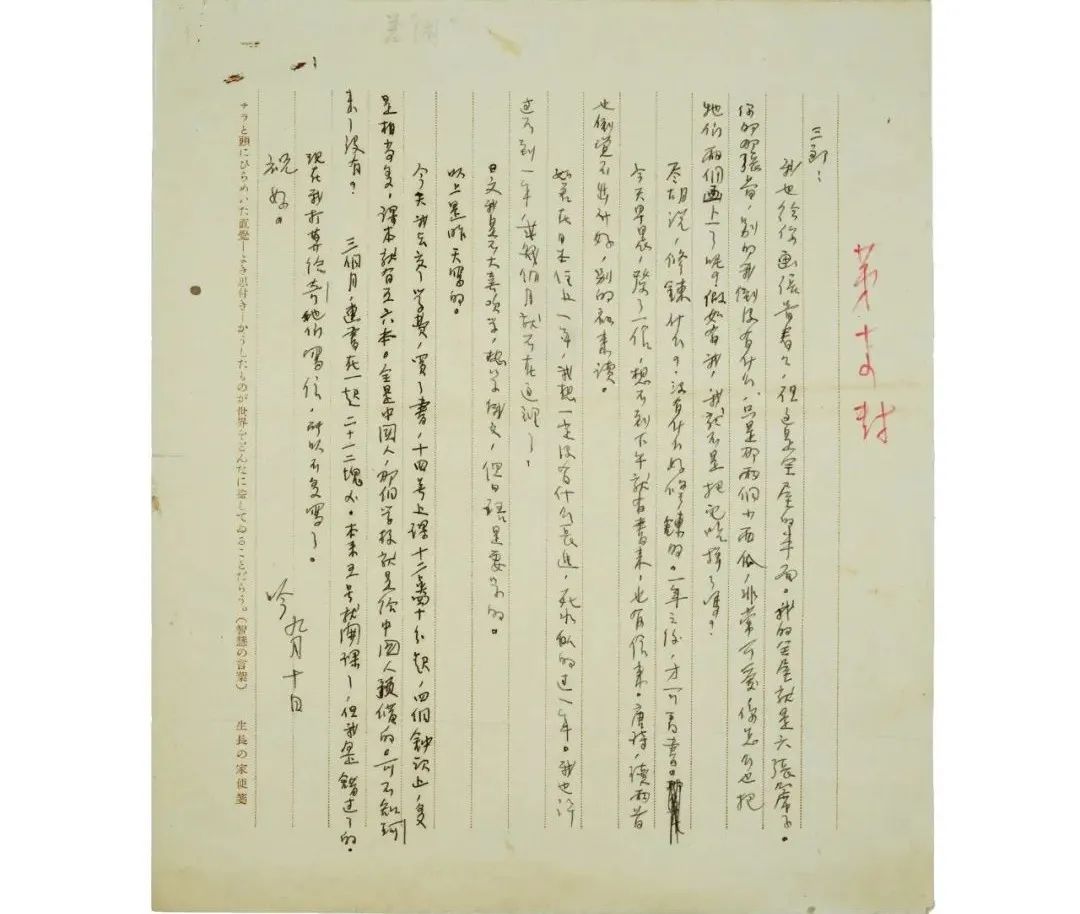 第十五封
三郎：
我也给你画张图看看，但这是全屋的半面。我的全屋就是六张席子。
你的那張图，别的我倒没有什么，只是那兩個小西瓜，非常可爱，你怎么也把
牠们兩個画上了呢？假如有我，我就不是把它吃掉了嗎？
尽胡说，修鍊什么？没有什么好修鍊的。一年之後，才可看書。
今天早晨，發了一信，想不到下午就有書来，也有信来。唐诗，读兩首
也倒觉不出什么好，别的都未读。
如若在日本住上一年，我想一定没有什么長進，死水似的过一年。我也許
过不到一年，或幾個月就不在这裡了。
日文我是不大喜欢学，想学俄文，但日語是要学的。
以上是昨天寫的。
今天我去交了学费，買了書，十四号上课，十二點四十分起，四個鐘头止，多
是相当多，课本就有五六本。全是中國人，那個学校就是给中國人預備的。可不知珂
来了没有？
三個月，連書在一起二十一二塊錢。本来五号就開课了，但我是錯过了的。
現在我打算给奇她们寫信，所以不多寫了。
祝好。
吟 九月十日
フラと頭にひらめいた直覺—よき思付き—かうしたものが世界をどんなに益してゐることだらう。（智慧の言葉） 生長の家便箋